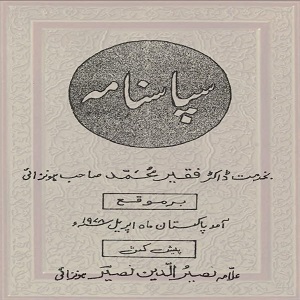 سپاسنامہ
بخدمت ڈاکٹر فقیر محمّد صاحب ہونزائی
برموقع
آمد پاکستان ماہ اپریل ۱۹۷۸ء
پیش کنندہ
علّامہ نصیر الدّین نصیر ہونزائی